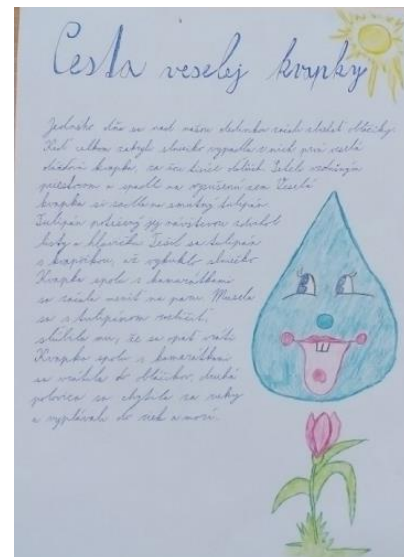 Cesta veselej kvapky
Jedného dňa sa nad našou dedinkou začali zbiehať obláčiky.
Keď celkom zakryli slniečko vypadla z nich prvá veselá
dažďová kvapka, za ňou tisíce ďalších. Leteli vzdušným
priestorom a spadli na vysušenú zem. Veselá
kvapka si sadla na smutný tulipán.
Tulipán potešený jej návštevou zdvihol
listy a hlavičku. Tešil sa tulipán
s kvapkou, až vykuklo slniečko.
Kvapka spolu s kamarátkami
sa začala meniť na paru. Musela
sa s tulipánom rozlúčiť,
sľúbila mu, že sa opäť vráti.
Kvapka spolu s kamarátkami
sa vrátila do obláčikov, druhá
polovica sa chytila za ruky
a vyplávali do riek a morí.